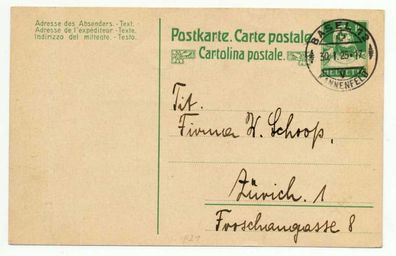 Adresse des Absenders. - Text.
Adresse de l'expéditeur. - Texte.
Indirizzo del mittente. - Testo.
Postkarte. Carte postale.
Cartolina postale.
BASEL 12
30.I.25-17
KANNENFELD
HELVETIA
Tit.
Firma W. Schoop,
Zürich. 1
Froschaugasse 8